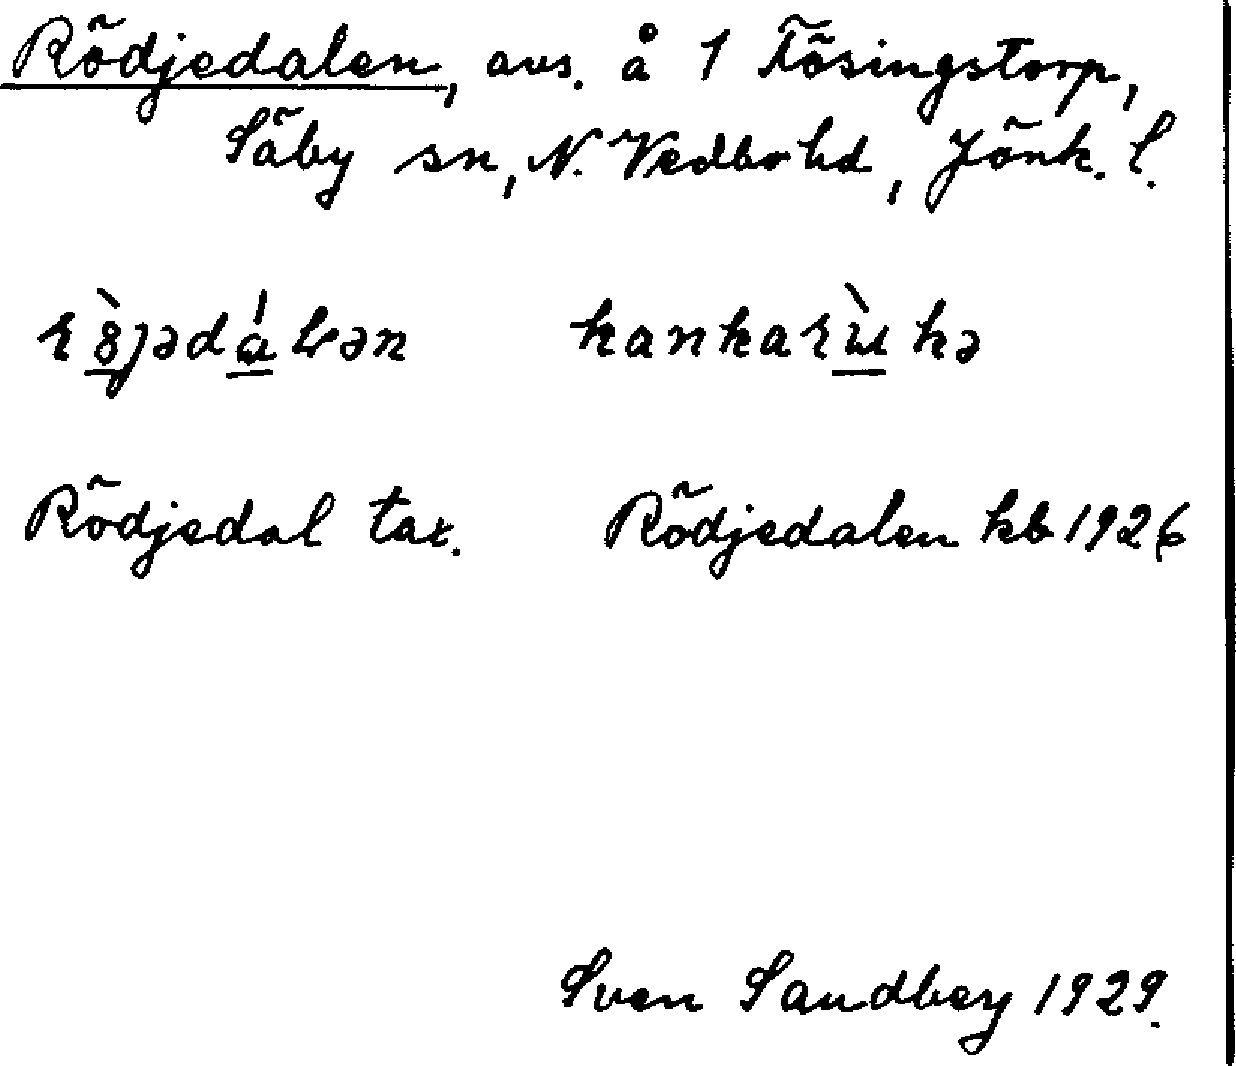 Rödjedalen, avs. å 1 Tösingstorp,
Säby sn, N. Vedbo hd, Jönk. l.
Rödjedal tax. Rödjedalen kb 1926
Sven Sandberg 1929.